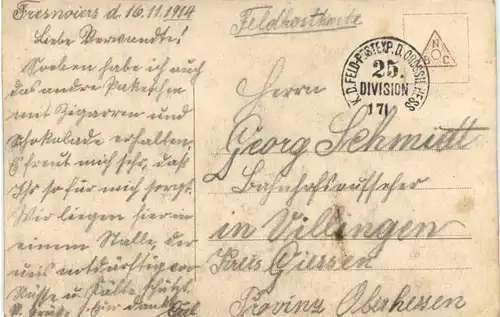 Fresnoiers d. 16.11.1914
Liebe Verwandte!
Soeben habe ich auch
das andere Paketchen
mit Zigarren und
Schokulade erhalten.
Es freut mich sehr, daß
Ihr so für mich sorgt.
Wir liegen hier in
einem Stalle, der
uns notdürftig vor
Nässe u. Kälte schützt.
Feldpostkarte
K.D. FELD-POSTEXP. D. GROSSH. HESS
25.
DIVISION
N
B C
Herrn
Georg Schmidt
Bahnhofsaufseher
in Villingen
Kreis Giessen
Provinz Oberhessen